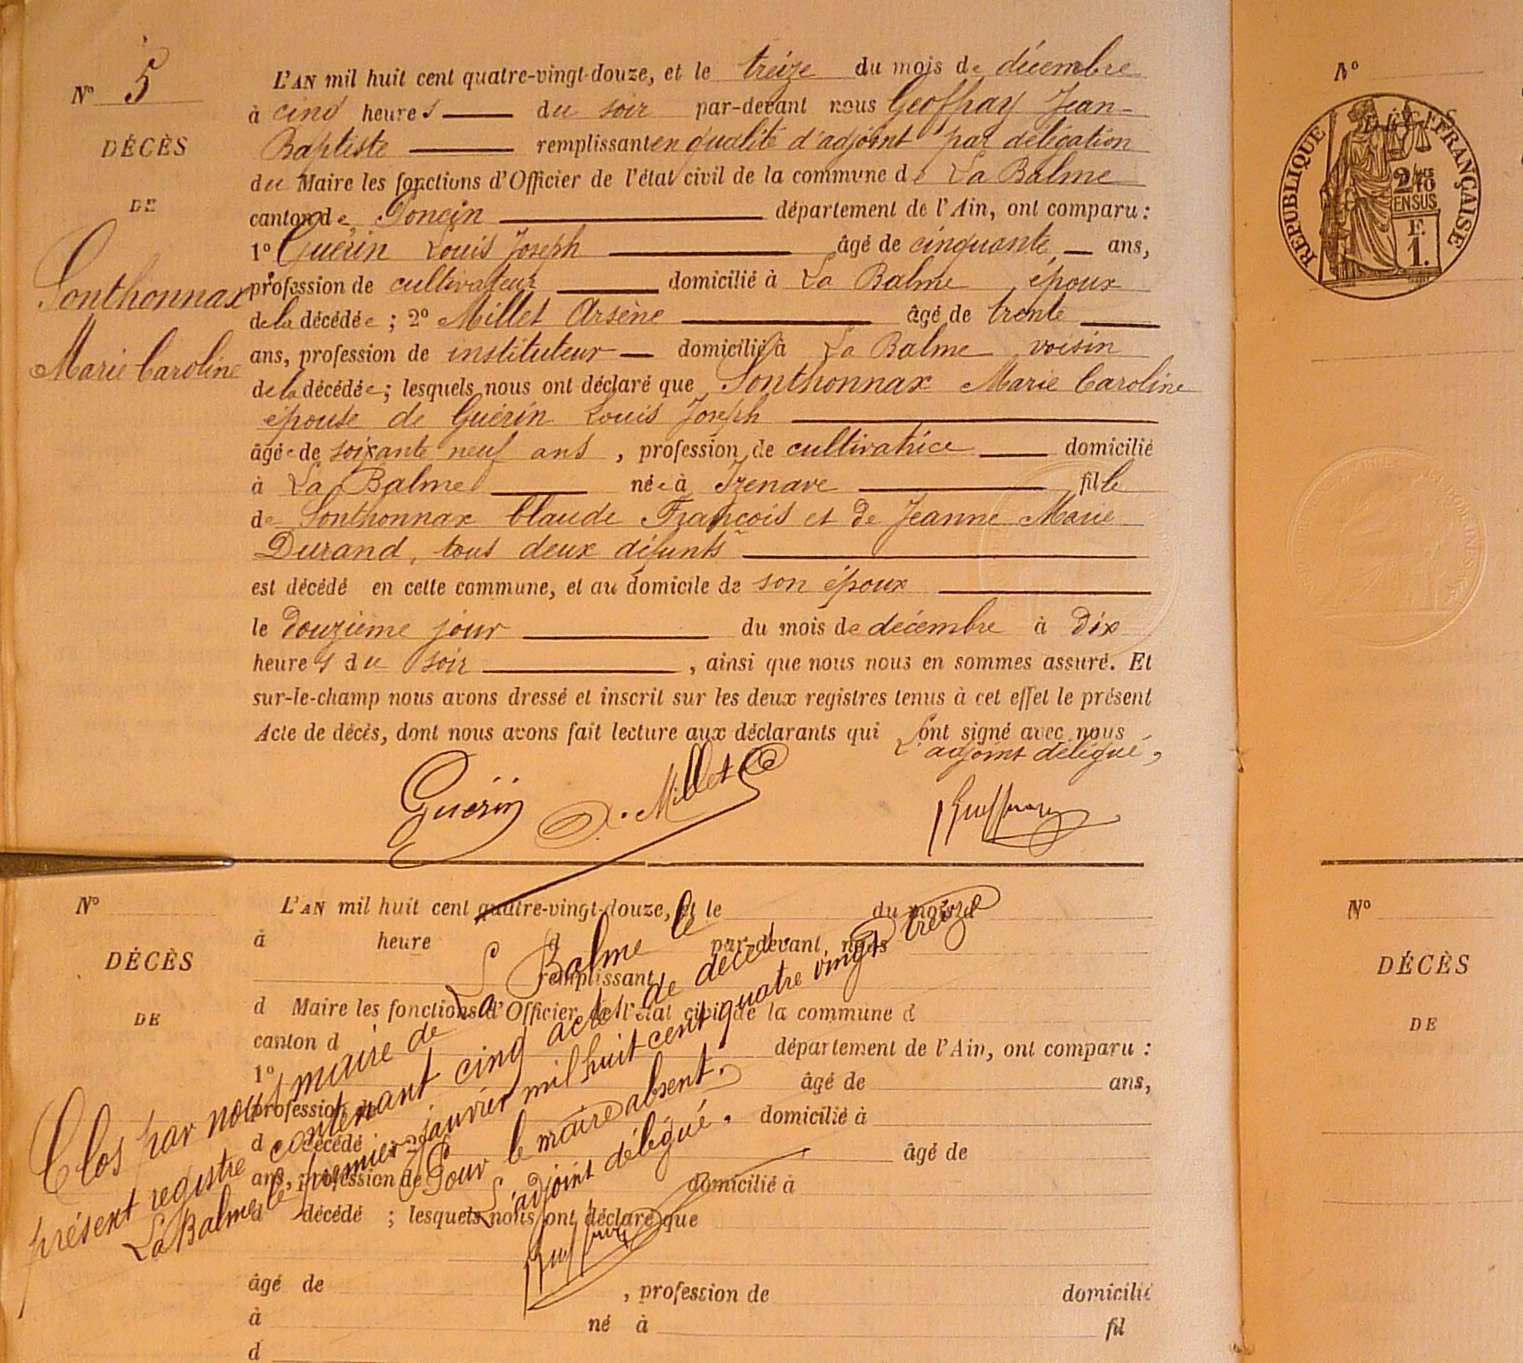 N° 5
DÉCÈS
DE
Sonthonnax
Marie Caroline
L'AN mil huit cent quatre-vingt-douze, et le treize du mois de décembre
à cinq heures du soir par-devant nous Geoffray Jean-
Baptiste remplissant en qualité d'adjoint par délégation
du Maire les fonctions d'Officier de l'état civil de la commune de La Balme
canton de Poncin département de l'Ain, ont comparu :
1° Guérin Louis Joseph âgé de cinquante ans,
profession de cultivateur domicilié à La Balme époux
de la décédée ; 2° Millet Arsène âgé de trente
ans, profession de instituteur domicilié à La Balme voisin
de la décédée ; lesquels nous ont déclaré que Sonthonnax Marie Caroline
épouse de Guérin Louis Joseph
âgée de soixante neuf ans , profession de cultivatrice domicilié
à La Balme née à Izenave fille
de Sonthonnax Claude François et de Jeanne Marie
Durand, tous deux défunts
est décédé en cette commune, et au domicile de son époux
le douzième jour du mois de décembre à dix
heures du soir , ainsi que nous nous en sommes assuré. Et
sur-le-champ nous avons dressé et inscrit sur les deux registres tenus à cet effet le présent
Acte de décès, dont nous avons fait lecture aux déclarants qui ont signé avec nous
L'adjoint délégué,
Guérin A. Millet
N°
DÉCÈS
DE
L'AN mil huit cent quatre-vingt-douze, et le du mois d
à heure d par-devant nous
remplissant
d Maire les fonctions d'Officier de l'état civil de la commune d
canton d département de l'Ain, ont comparu :
1° âgé de ans,
profession de domicilié à
d décédé ; 2° âgé de
ans, profession de domicilié à
d décédé ; lesquels nous ont déclaré que
âgé de , profession de domicilié
à né à fil
d
Clos par nous maire de La Balme le
présent registre contenant cinq actes de décès
La Balme le premier janvier mil huit cent quatre vingt treize
Pour le maire absent.
L'adjoint délégué.
N°
RÉPUBLIQUE FRANÇAISE
2/10
EN SUS
F.
1.
N°
DÉCÈS
DE